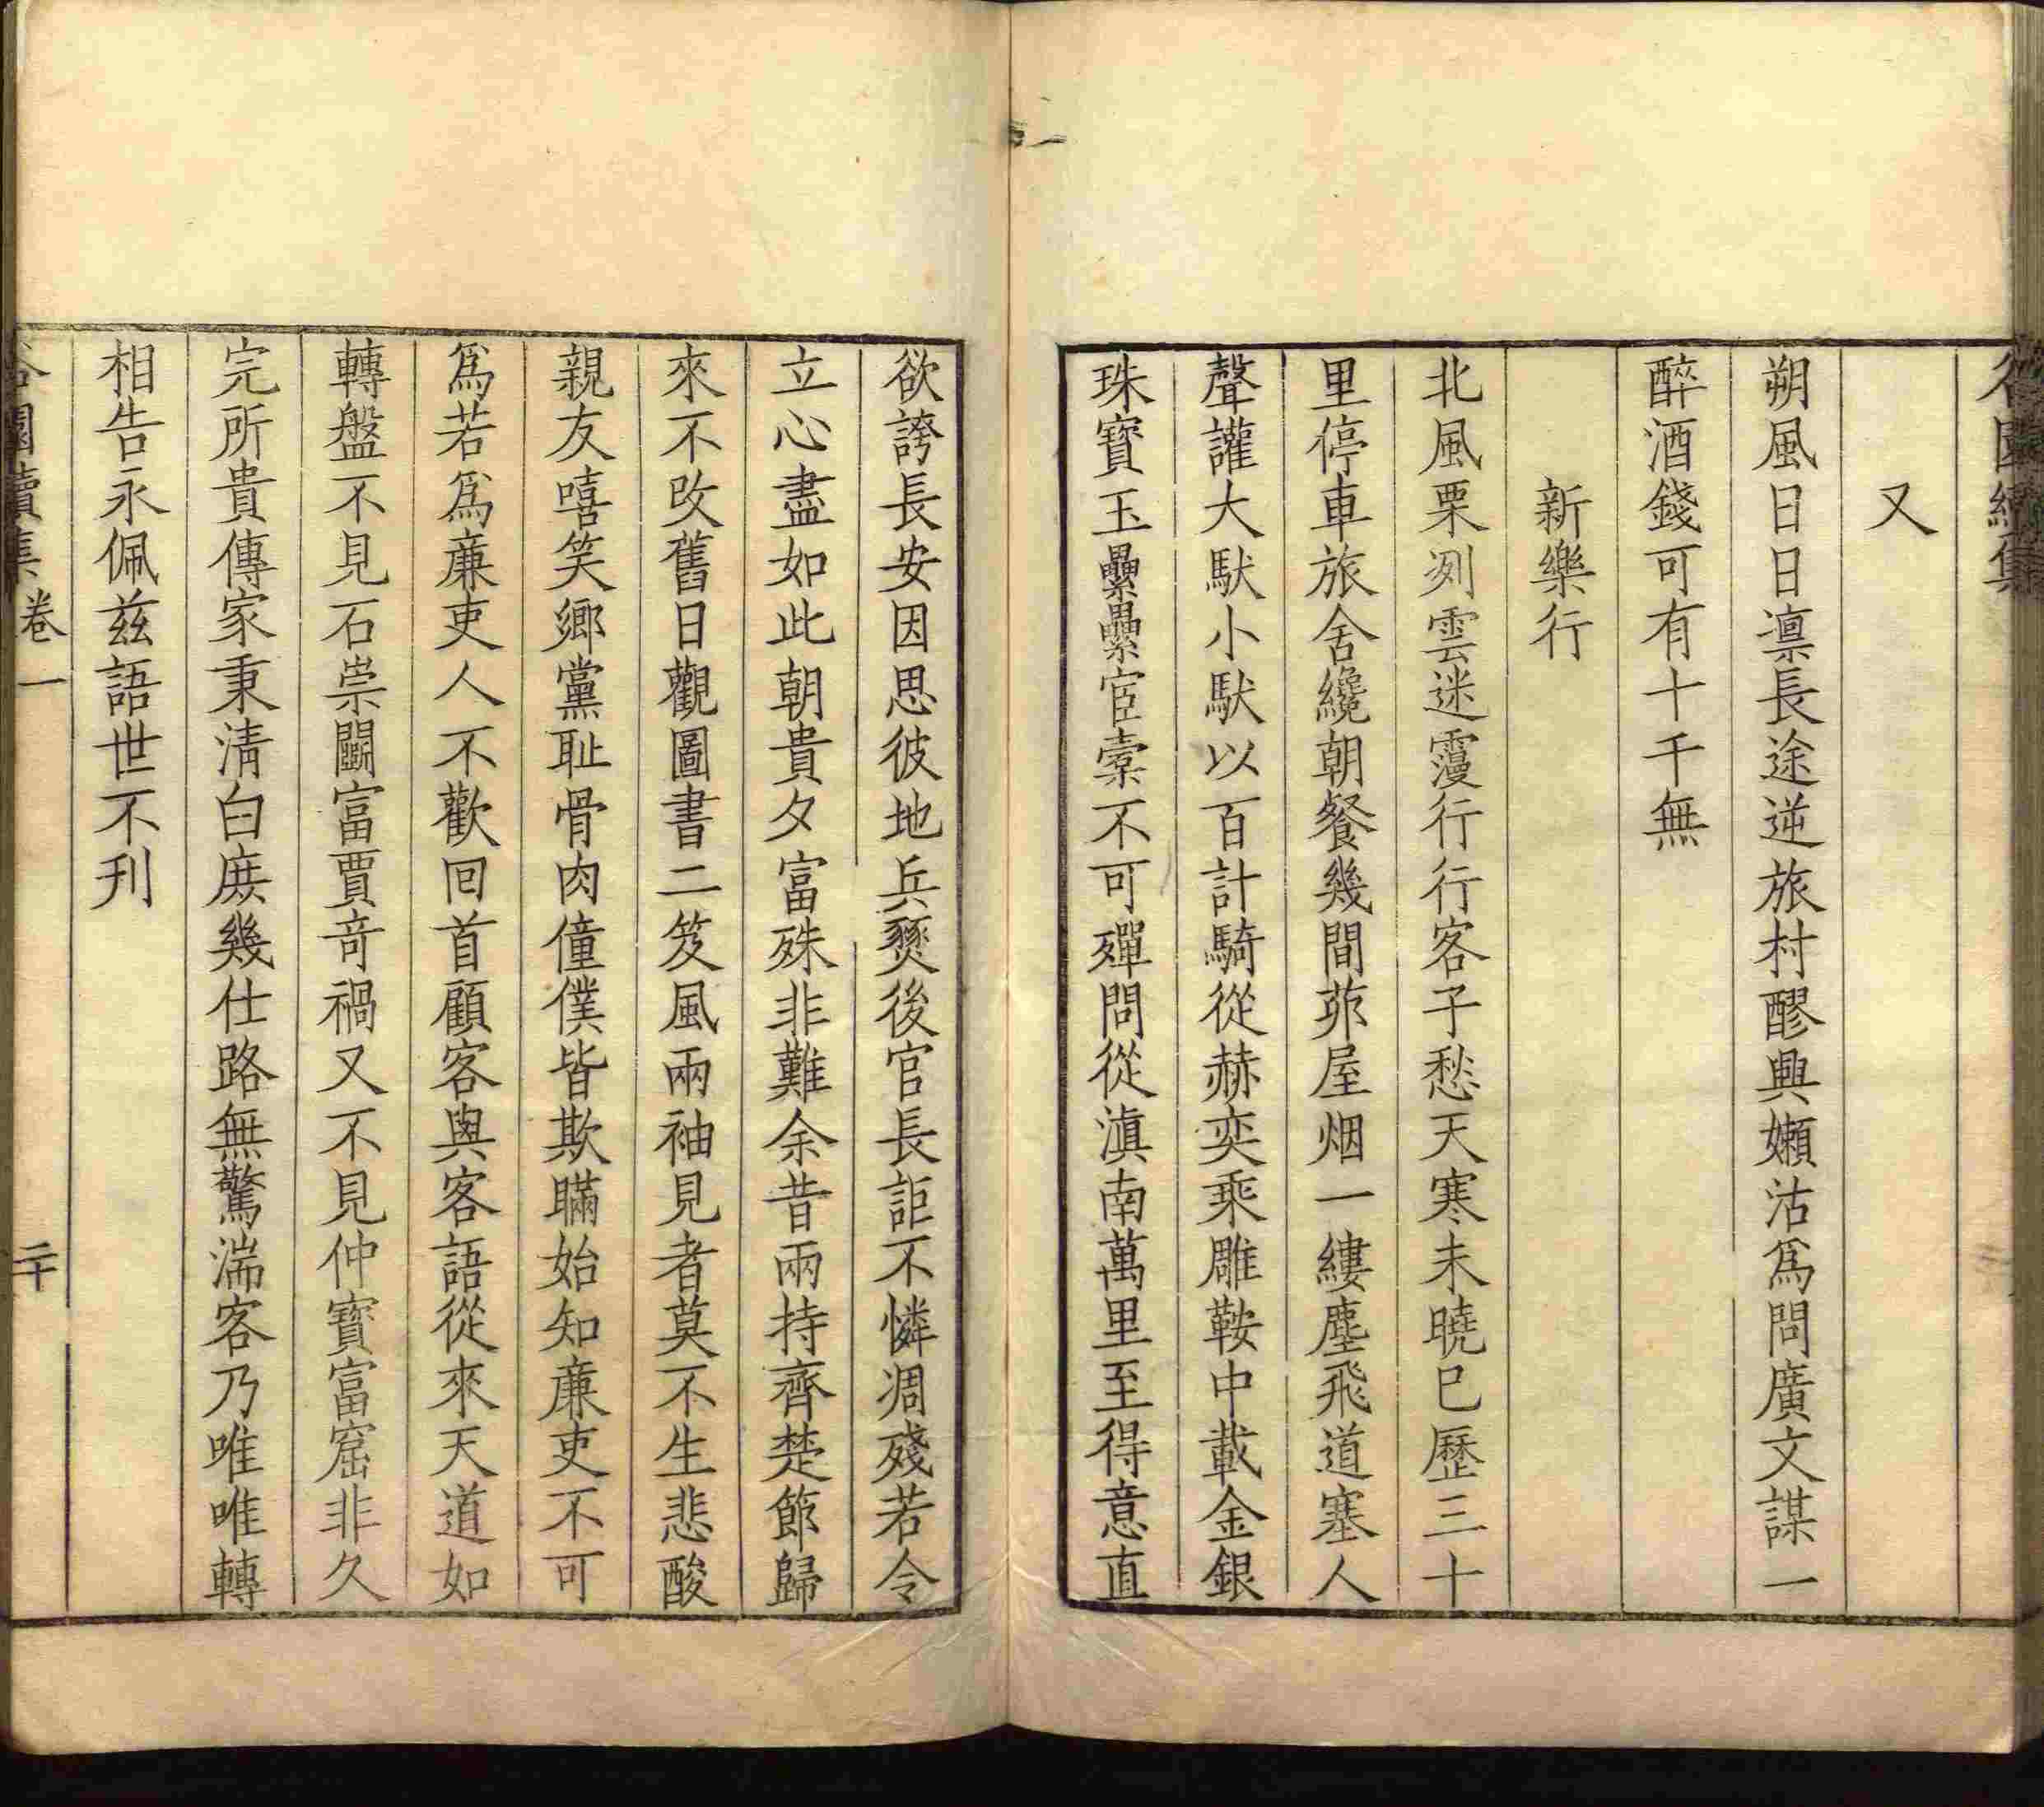 又
朔風日日凛長途逆旅村醪興嬾沽爲問廣文謀一
醉酒錢可有十千無
新樂行
北風栗冽雲迷霪行行客子愁天寒未曉巳歷三十
里停車旅舍纔朝餐幾間茆屋烟一縷塵飛道塞人
聲讙大馱小馱以百計騎從赫奕乘雕鞍中載金銀
珠寶玉纍纍宦橐不可殫問從滇南萬里至得意直
欲誇長安因思彼地兵燹後官長詎不憐凋殘若令
立心盡如此朝貴夕富殊非難余昔兩持齊楚節歸
來不改舊日觀圖書二笈風兩袖見者莫不生悲酸
親友嘻笑鄉黨耻骨肉僮僕皆欺瞞始知廉吏不可
爲若爲廉吏人不歡回首顧客與客語從來天道如
轉盤不見石崇鬭富賈竒禍又不見仲寶富窟非久
完所貴傳家秉清白庻幾仕路無驚湍客乃唯唯轉
相告永佩兹語世不刋
谷園續集 卷一 二十